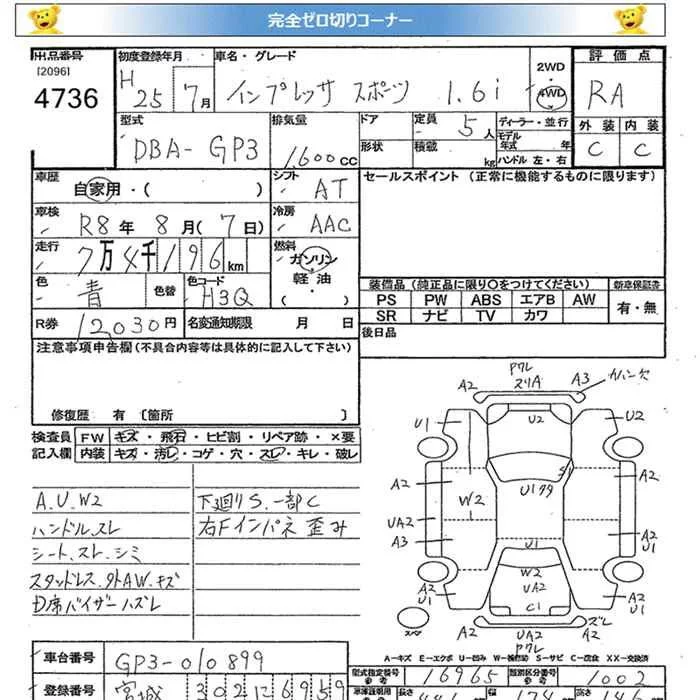 完全ゼロ切りコーナー
出品番号 [2096] 4736
初度登録年月 H 25 7月
車名・グレード インプレッサ スポーツ 1.6i
2WD・4WD
評価点 RA
型式 DBA-GP3
排気量 1600cc
ドア 形状
定員 5人
積載 kg
ディーラー・並行
モデル年式 年
ハンドル 左・右
外装 C 内装 C
車歴 自家用・( )
シフト AT
セールスポイント (正常に機能するものに限ります)
車検 R8年 8月(7日)
冷房 AAC
走行 7万4千196km
燃料 ガソリン 軽油 ( ・ )
色 青 色替 色コード H3Q
装備品 (純正品に限り○をつけてください) 新車保証書
PS PW ABS エアB AW 有・無
SR ナビ TV カワ
R券 12030円 名変通知期限 月 日
後日品
注意事項申告欄 (不具合内容等は具体的に記入して下さい)
修復歴 有 [箇所 ]
検査員 FW キズ・飛石・ヒビ割・リペア跡・×要
記入欄 内装 キズ・汚レ・コゲ・穴・スレ・キレ・破レ
A.U.W2 下廻りS.一部C
ハンドル.スレ 右Fインパネ歪み
シート.スレ.シミ
スタッドレス.外AW.キズ
D席バイザーハズレ
ワレ
A2 スリA A3 カバー欠
U1 U2 U2
A2 A2
W2 U1 S
UA2
A3 A2 U1
U1
W2
UA2
A2 U1 C1 A2 U1
スペア A2 UA2 ズレ
ワレ
A-キズ E-エクボ U-凹み W-補修跡 S-サビ C-腐食 XX-交換済
車台番号 GP3-010899
型式指定番号 参考 16965 類別区分番号 参考 1002
登録番号 宮城 302 に 6959
車庫証明用 長さ 174